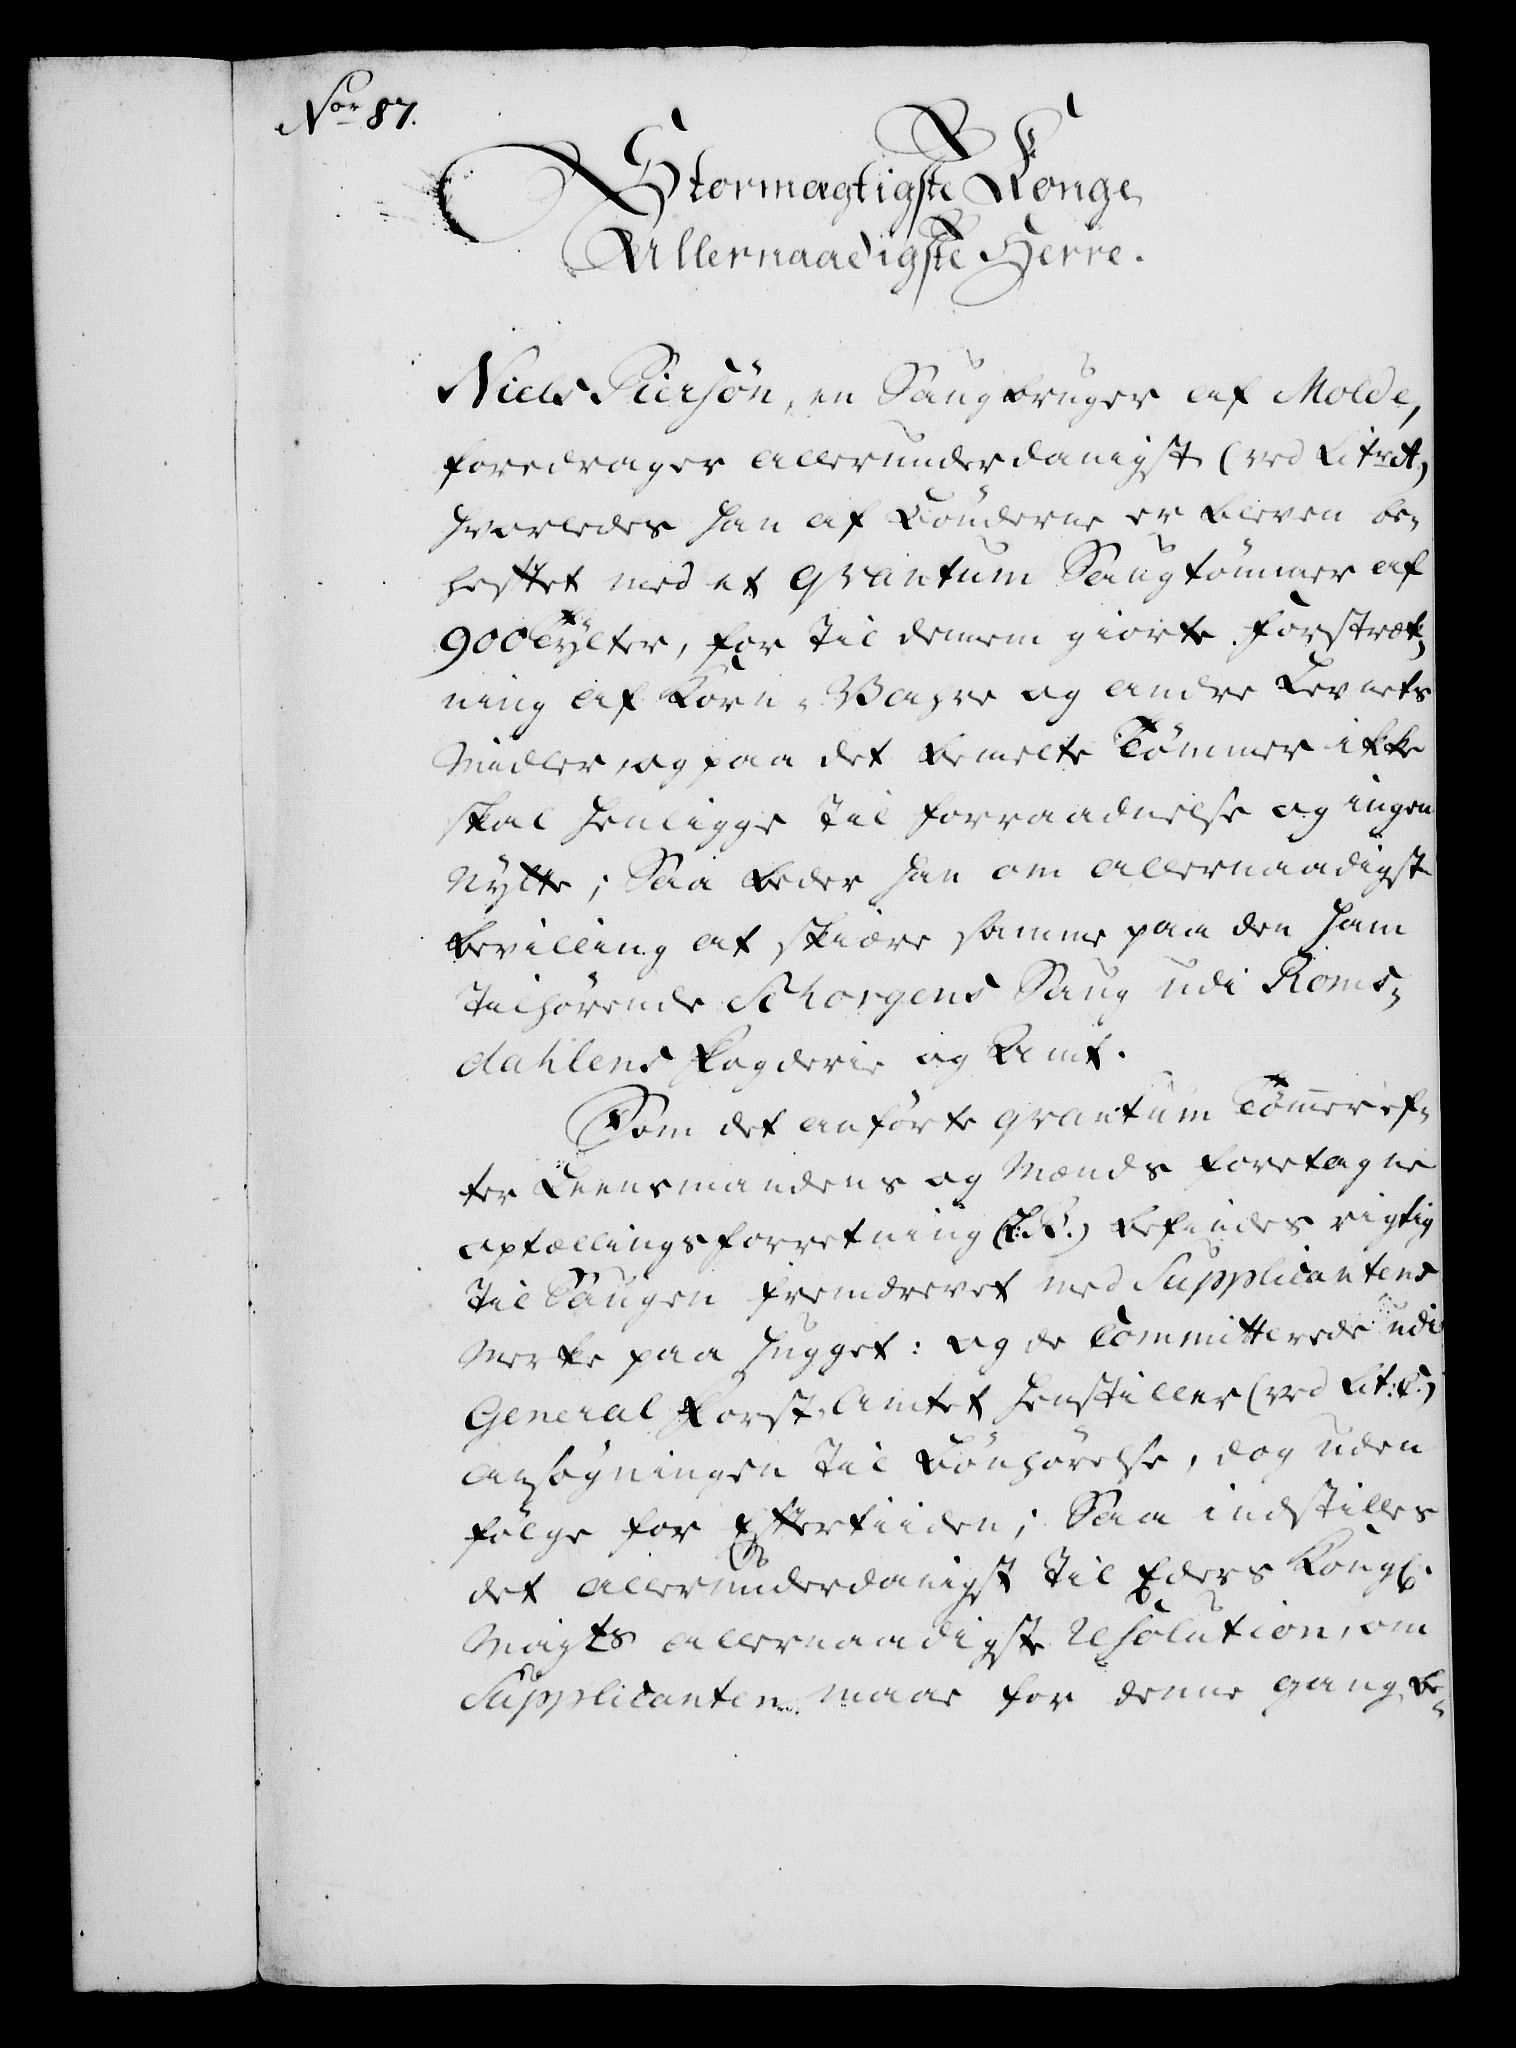 Nor 87.
Stormægtigste Konge
Allernaadigste Herre.
Niels Piersøn, en Saugbruger af Molde,
foredrager allerunderdanigst (ved Litr A,
hvorledes han af Bønderne er bleven be-
heftet med et qvantum Saugtømmer af
900 Tylter, for til dennem giorte Forstræk-
ning af Korn-Vahre og andre Levnets
Midler, og paa det bemelte Tømmer ikke
skal henligge til forraadnelse og ingen
Nytte; Saa beder han om allernaadigst
bevilling at skiære samme paa den ham
tilhørende Schorgens Saug udi Roms-
dahlens Fogderie og Amt.
Som det anførte qvantum Tømer ef-
ter Leensmandens og Mænds foretagne
optællings forretning (L: B.) befindes rigtig
til Saugen fremdrevet med Supplicantens
Merke paa hugget: og de Committerede udi
General Forst-Amtet henstiller (ved Lit: C.)
ansøgningen til Bønhørelse, dog uden
følge for Eftertiiden; Saa indstilles
det allerunderdanigst til Eders Kongl.
Mayts allernaadigste Resolution, om
Supplicanten maae for denne gang be-